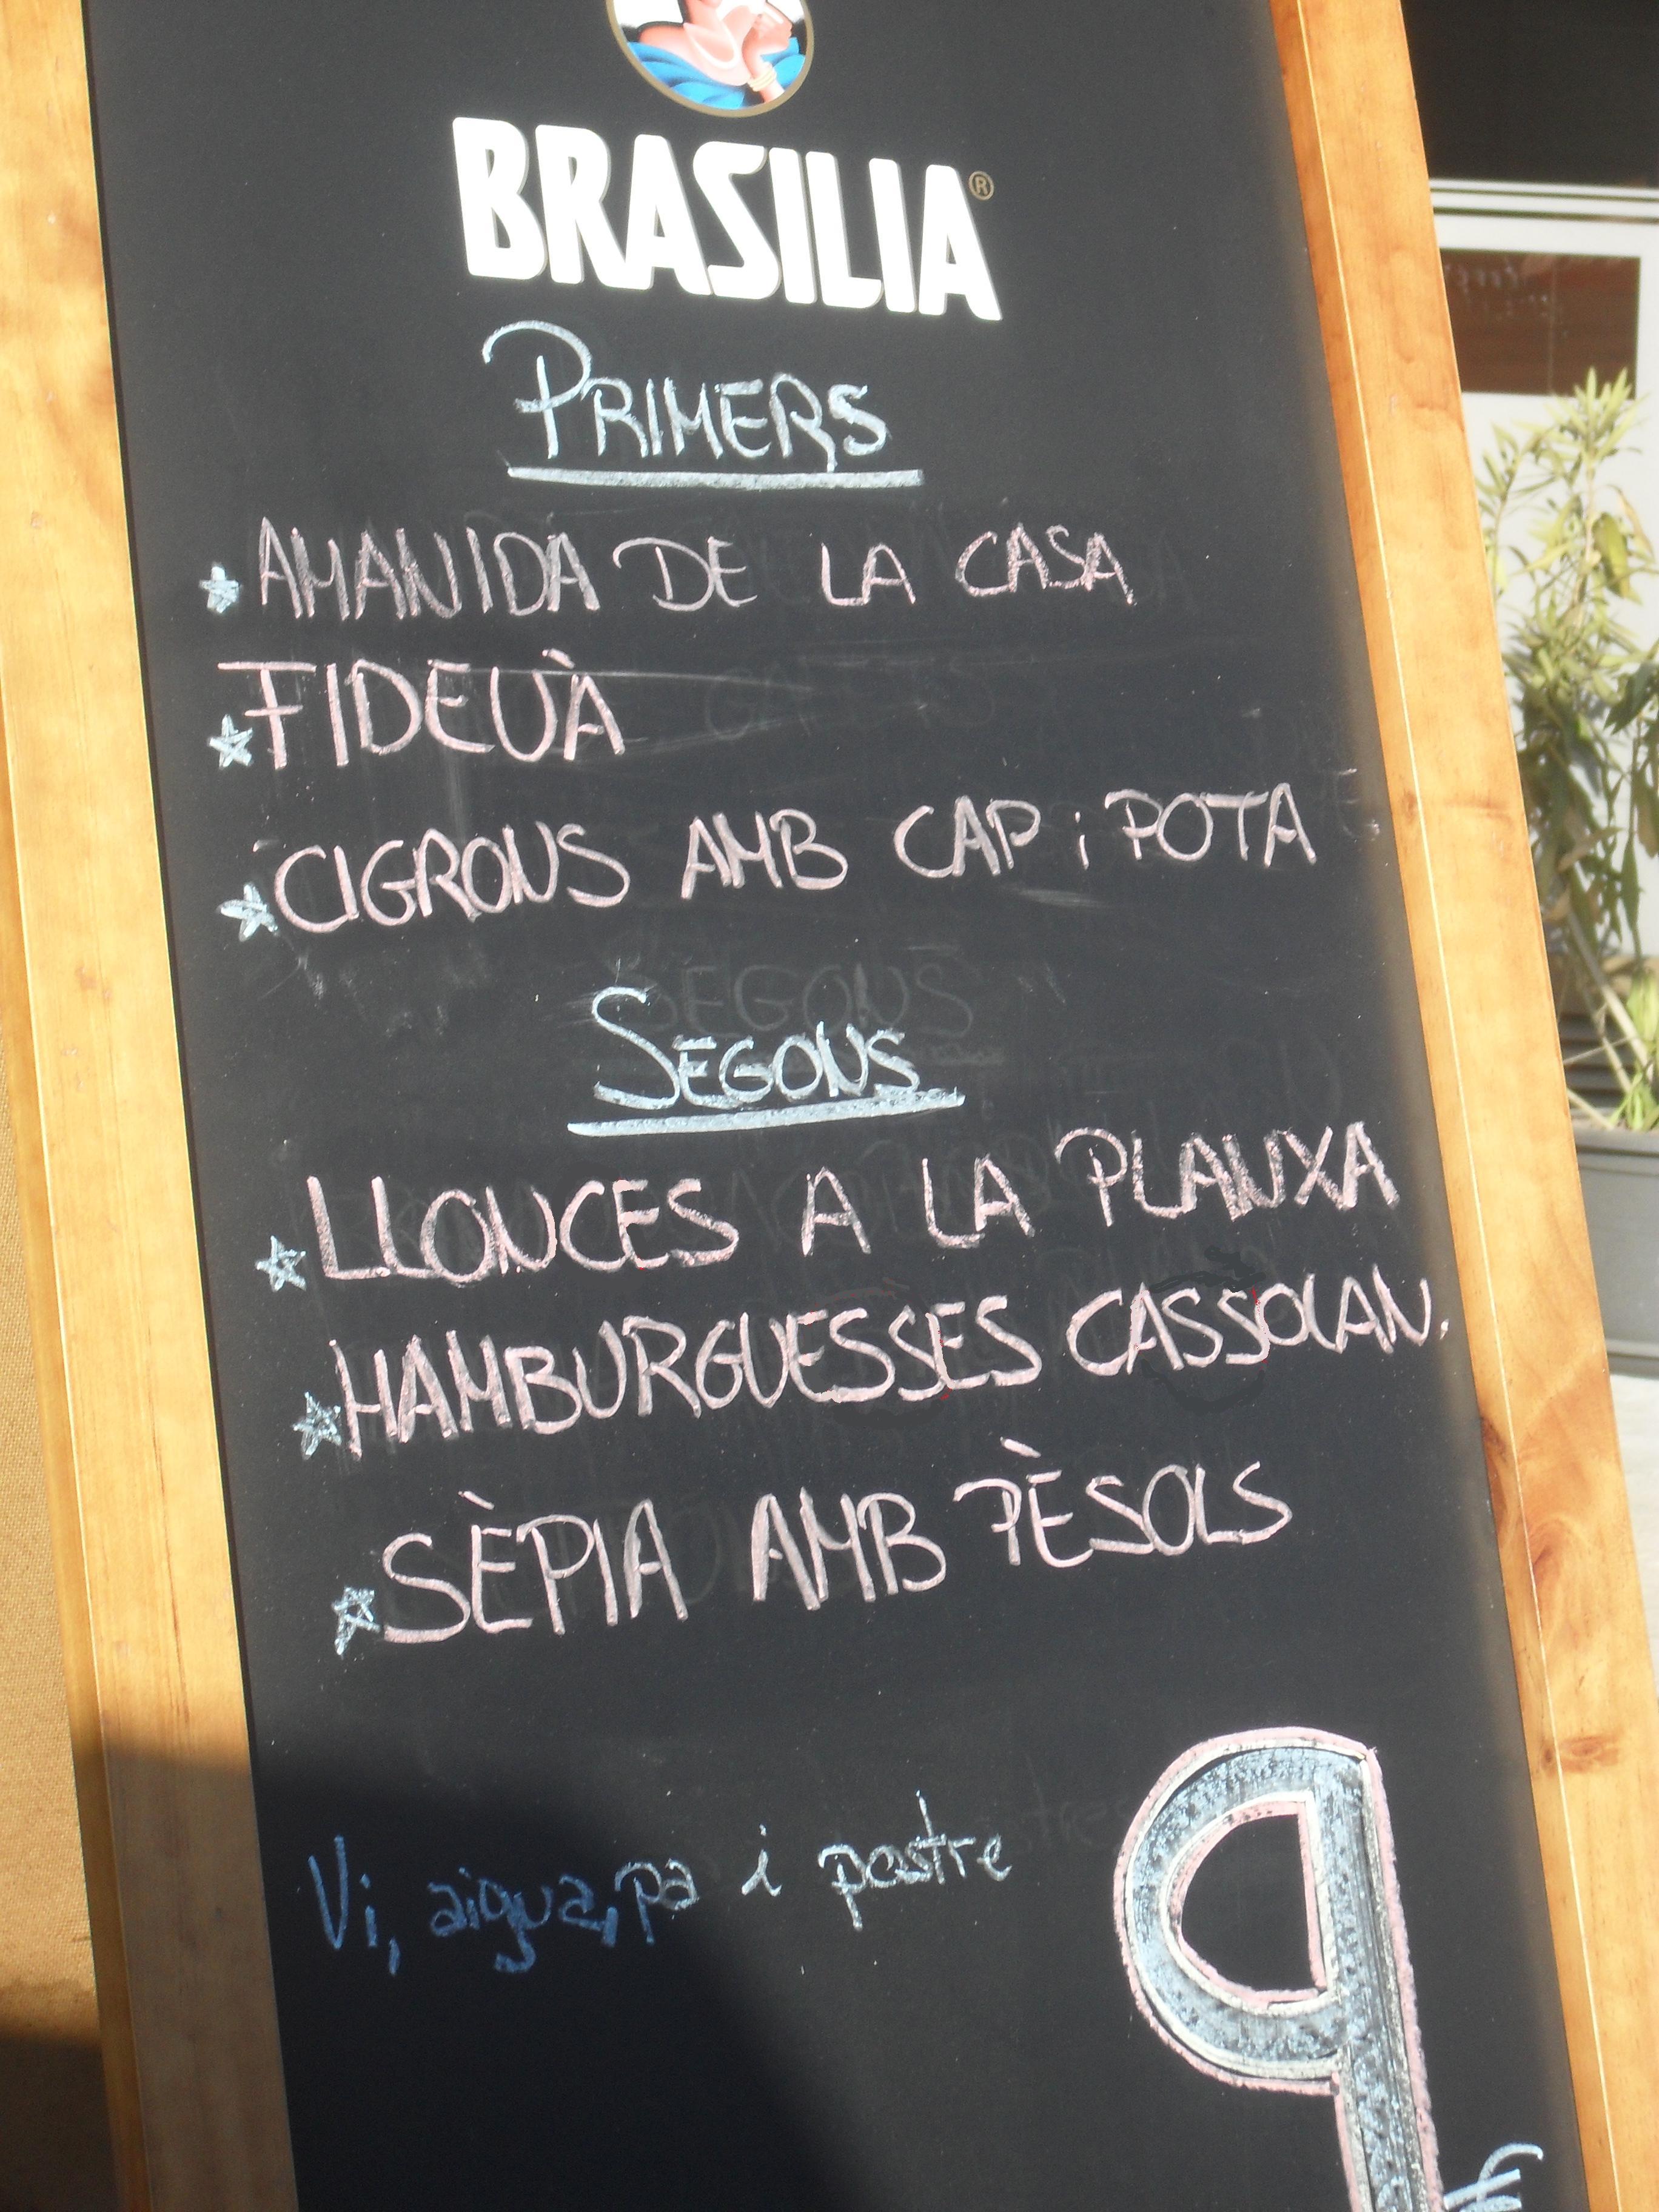 BRASILIA®
PRIMERS
AMANIDA DE LA CASA
FIDEUÀ
CIGRONS AMB CAP i POTA
SEGONS
LLONCES A LA PLANXA
HAMBURGUESSES CASSOLAN.
SÈPIA AMB PÈSOLS
Vi, aigua, pa i postre
9